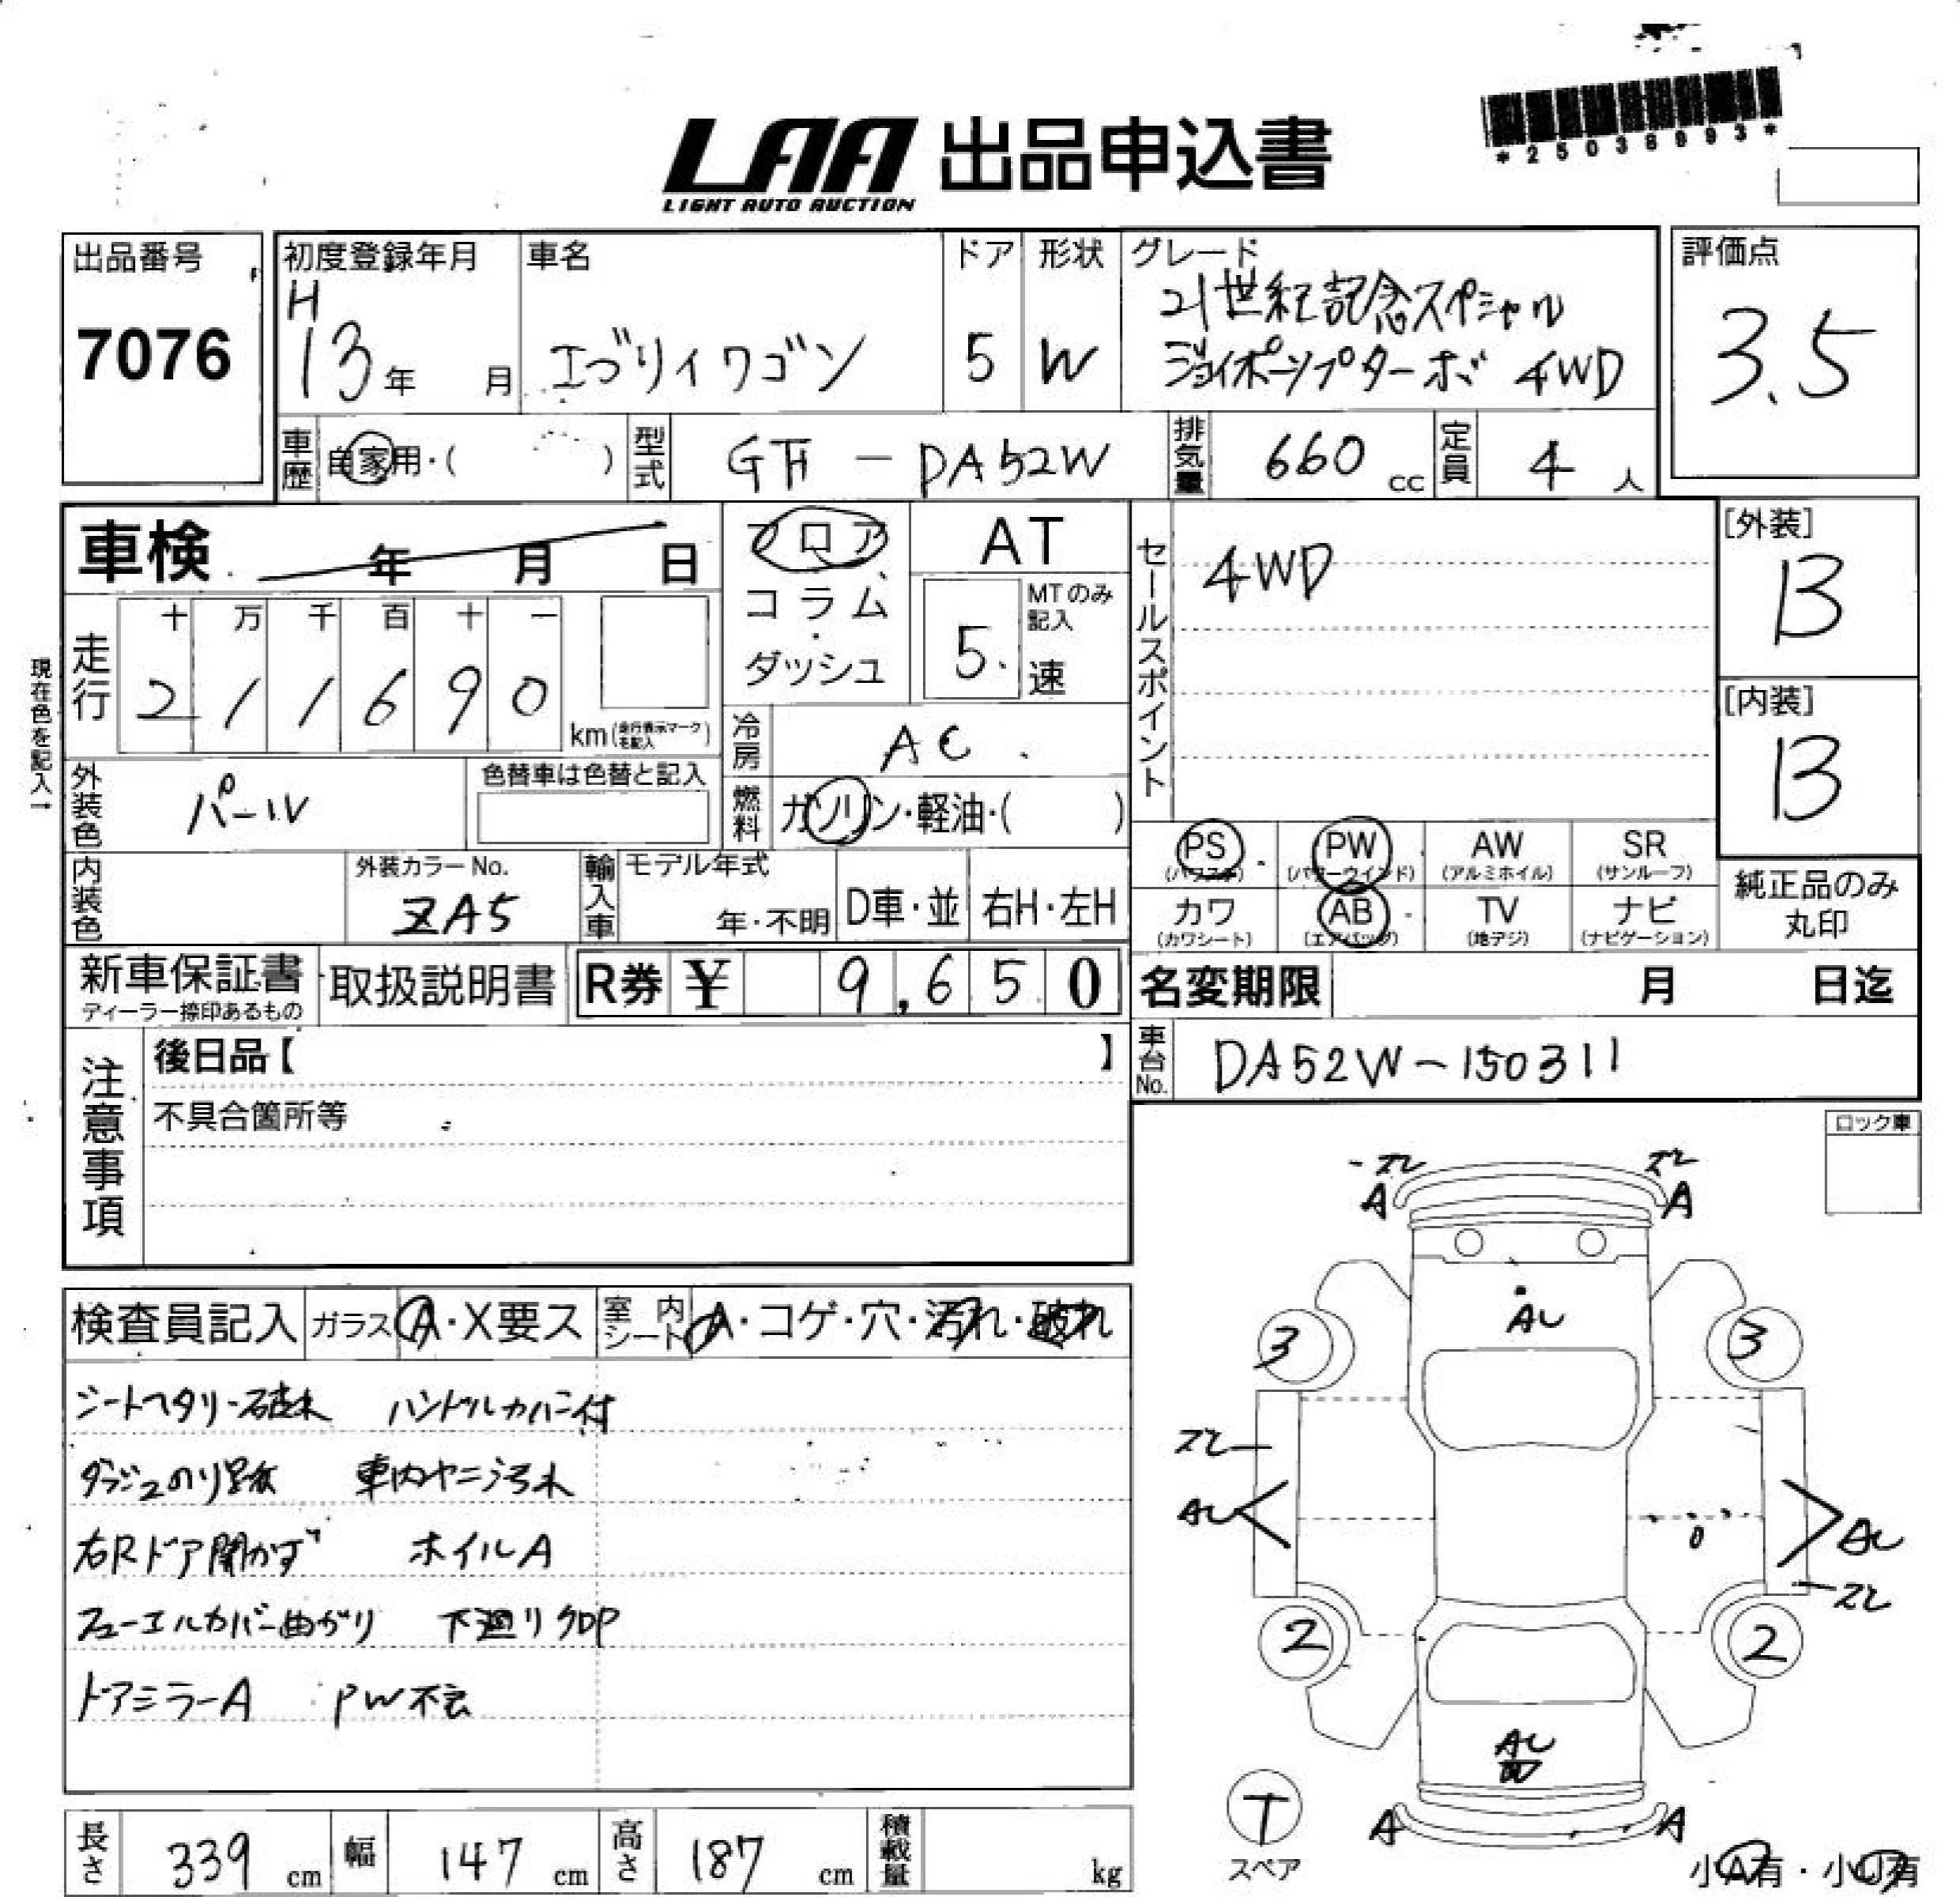 *25038993*
LAA 出品申込書
LIGHT AUTO AUCTION
出品番号
7076
初度登録年月
H
13年 月
車名
エブリイワゴン
ドア
5
形状
W
グレード
21世紀記念スペシャル
ジョイポップターボ 4WD
評価点
3.5
車歴 自家用・( )
型式 GF-DA52W
排気量 660 cc
定員 4 人
車検 年 月 日
フロア
コラム
・
ダッシュ
AT
MTのみ記入
5. 速
セールスポイント
4WD
[外装]
B
[内装]
B
現在色を記入→
走行
十 万 千 百 十 一
2 1 1 6 9 0
km(走行表示マークを記入)
冷房 AC
燃料 ガソリン・軽油・( )
外装色 パール
色替車は色替と記入
内装色
外装カラーNo.
ZA5
輸入車
モデル年式
年・不明
D車・並
右H・左H
PS (パワステ)
PW (パワーウインド)
AW (アルミホイル)
SR (サンルーフ)
カワ (カワシート)
AB (エアバッグ)
TV (地デジ)
ナビ (ナビゲーション)
純正品のみ
丸印
新車保証書
ディーラー捺印あるもの
取扱説明書
R券 ¥ 9,650
名変期限 月 日迄
車台No. DA52W-150311
注意事項
後日品【 】
不具合箇所等
ロック車
検査員記入
ガラス A・X要ス
室内シート A・コゲ・穴・汚れ・破れ
シートヘタリ・破れ ハンドルカバー付
ダッシュのり跡 車内ヤニ汚れ
右Rドア開かず ホイルA
フューエルカバー曲がり 下廻りクロP
ドアミラーA PW不
ズレ
ズレ
A
A
AU
3
3
ズレ
AU
AU
ズレ
2
2
AU
A
A
T
スペア
小A有・小U有
長さ 339 cm
幅 147 cm
高さ 187 cm
積載量 kg